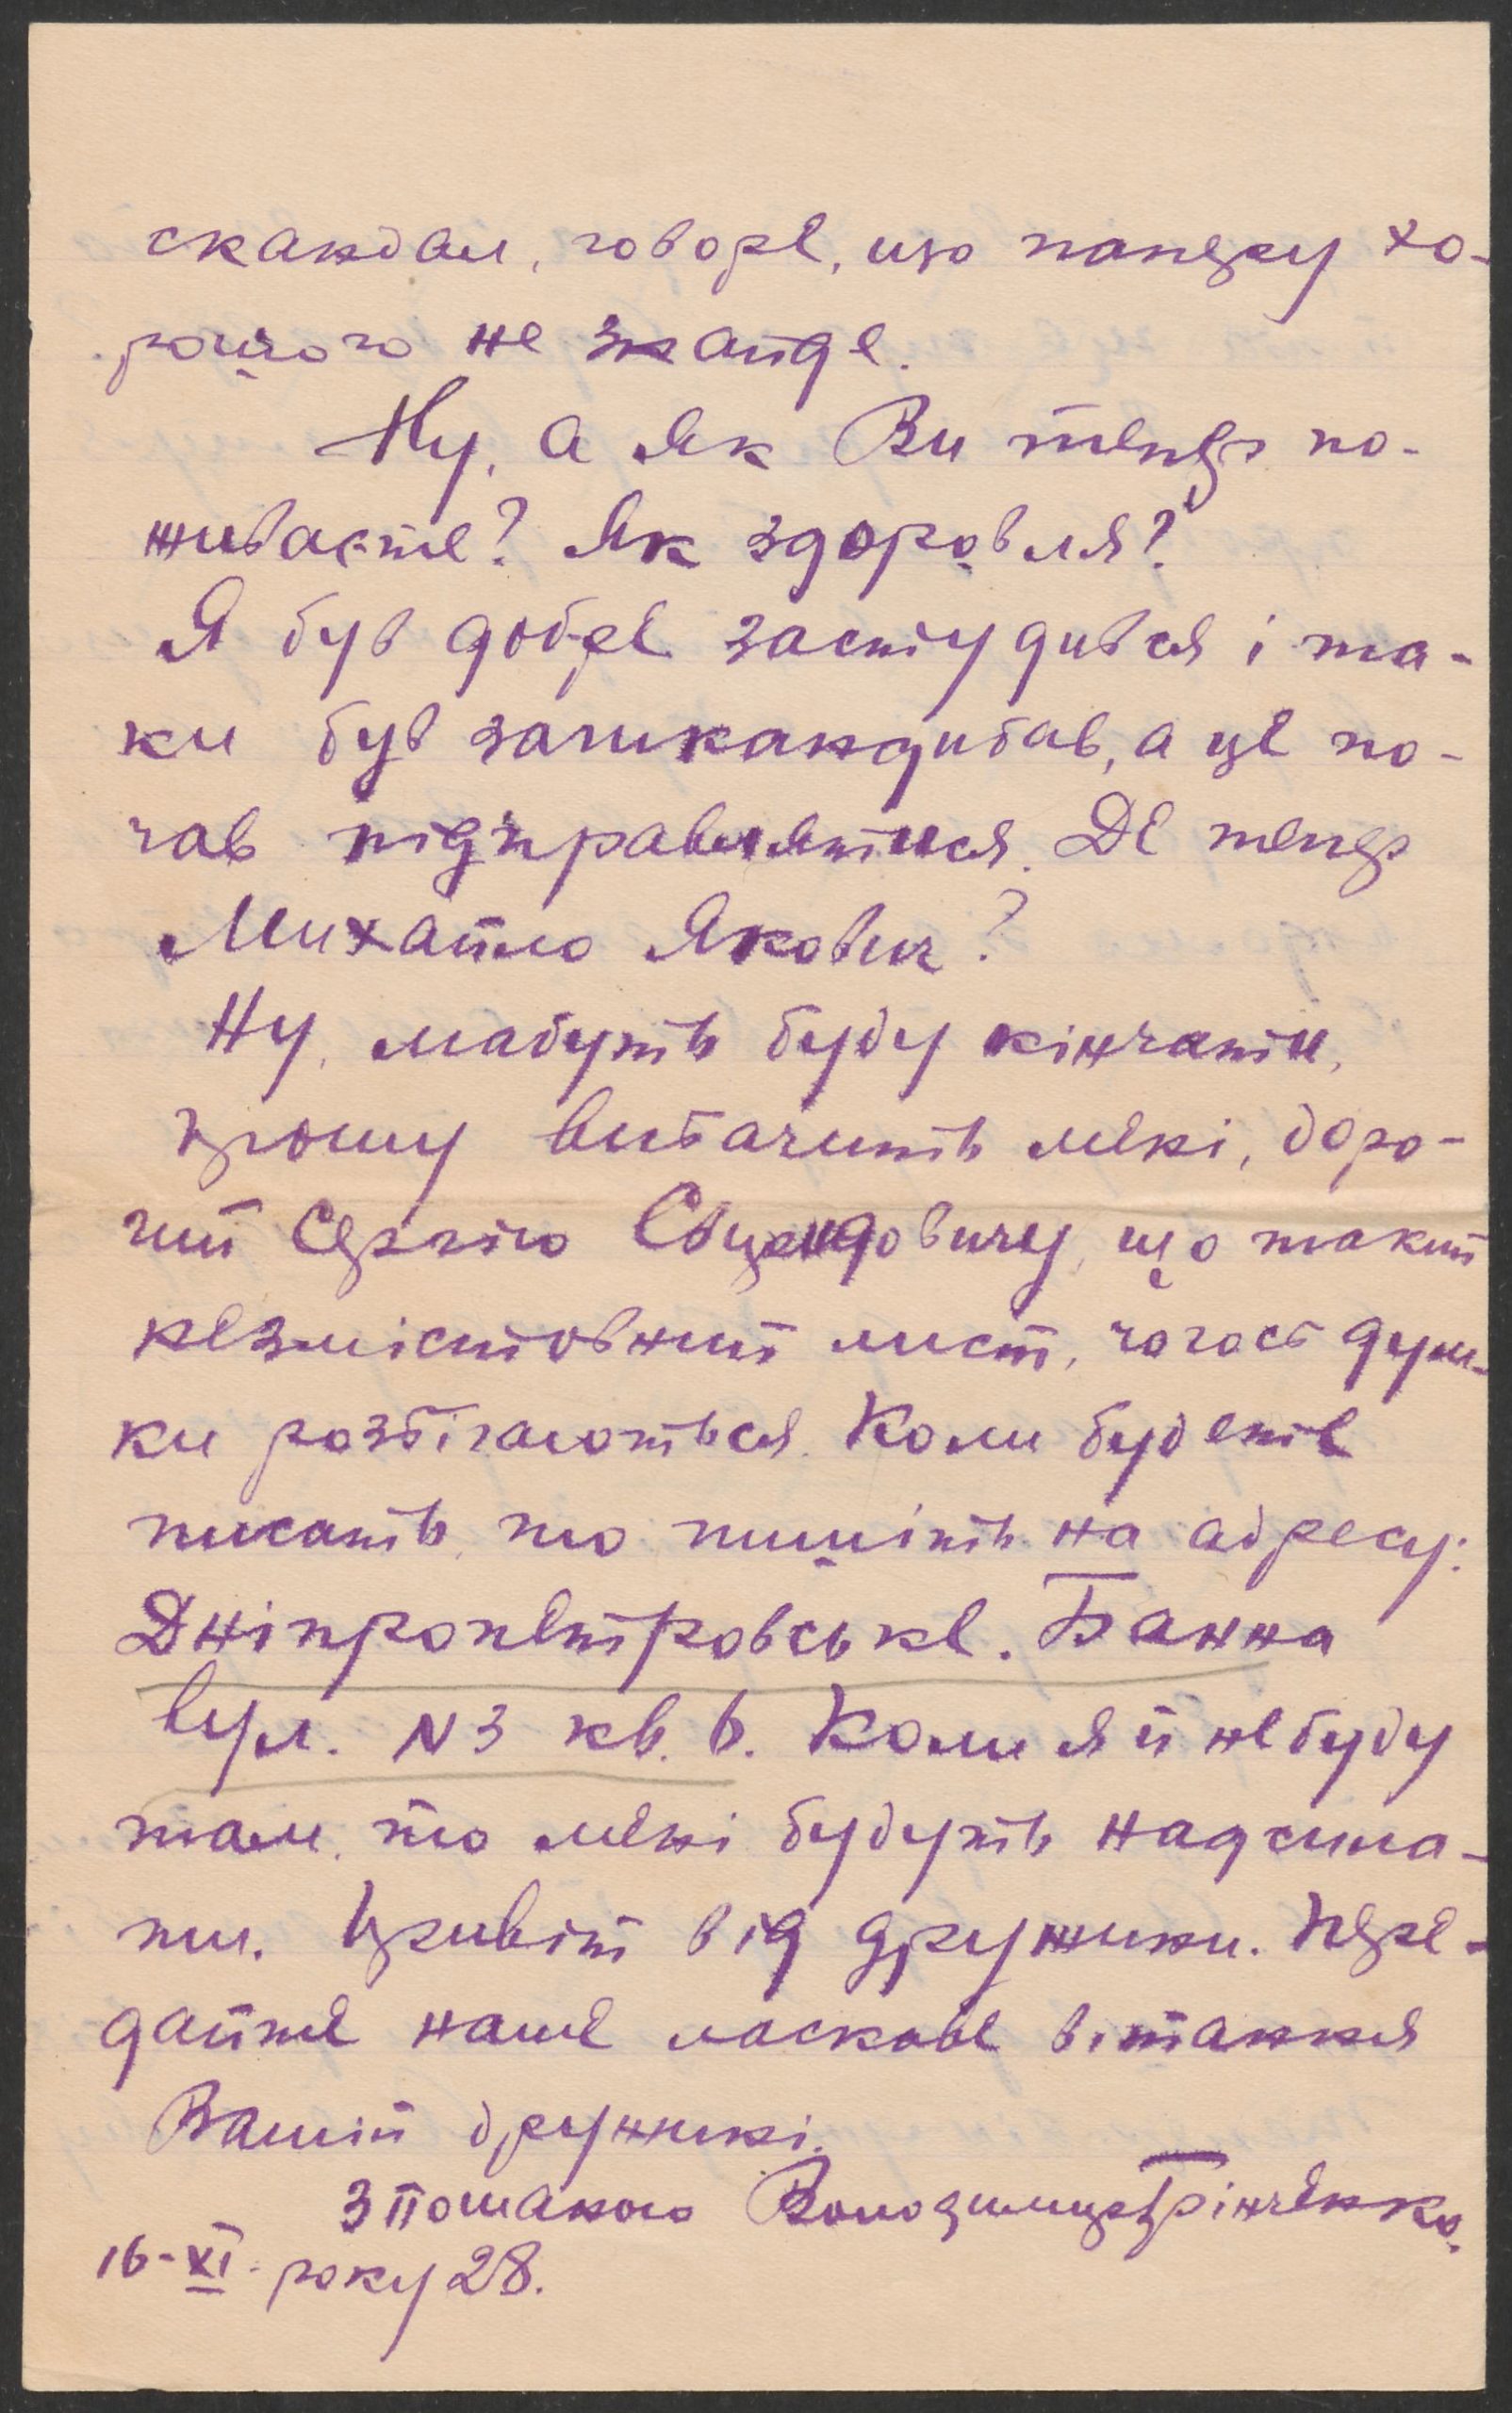 скандал, говоре, що папіру хо-
рошого не знайде.
Ну, а як Ви тепер по-
живаєте? Як здоровля?
Я був добре застудився і та-
ки був зашкандибав, а це по-
чав підправлятися. Де тепер
Михайло Якович?
Ну, мабуть буду кінчати,
прошу вибачить мені, доро-
гий Сергію
що такий
незмістовний лист, чогось дум-
ки розбігаються. Коли будете
писать, то пишіть на адресу:
Дніпропетровське. Банна
вул. N 3 кв. 6. Коли я й не буду
там, то мені будуть надсила-
ти. Привіт від дружини. Пере-
дайте наше ласкаве вітання
Вашій дружині.
З пошаною Володимир Грінченко.
16-XI- року 28.